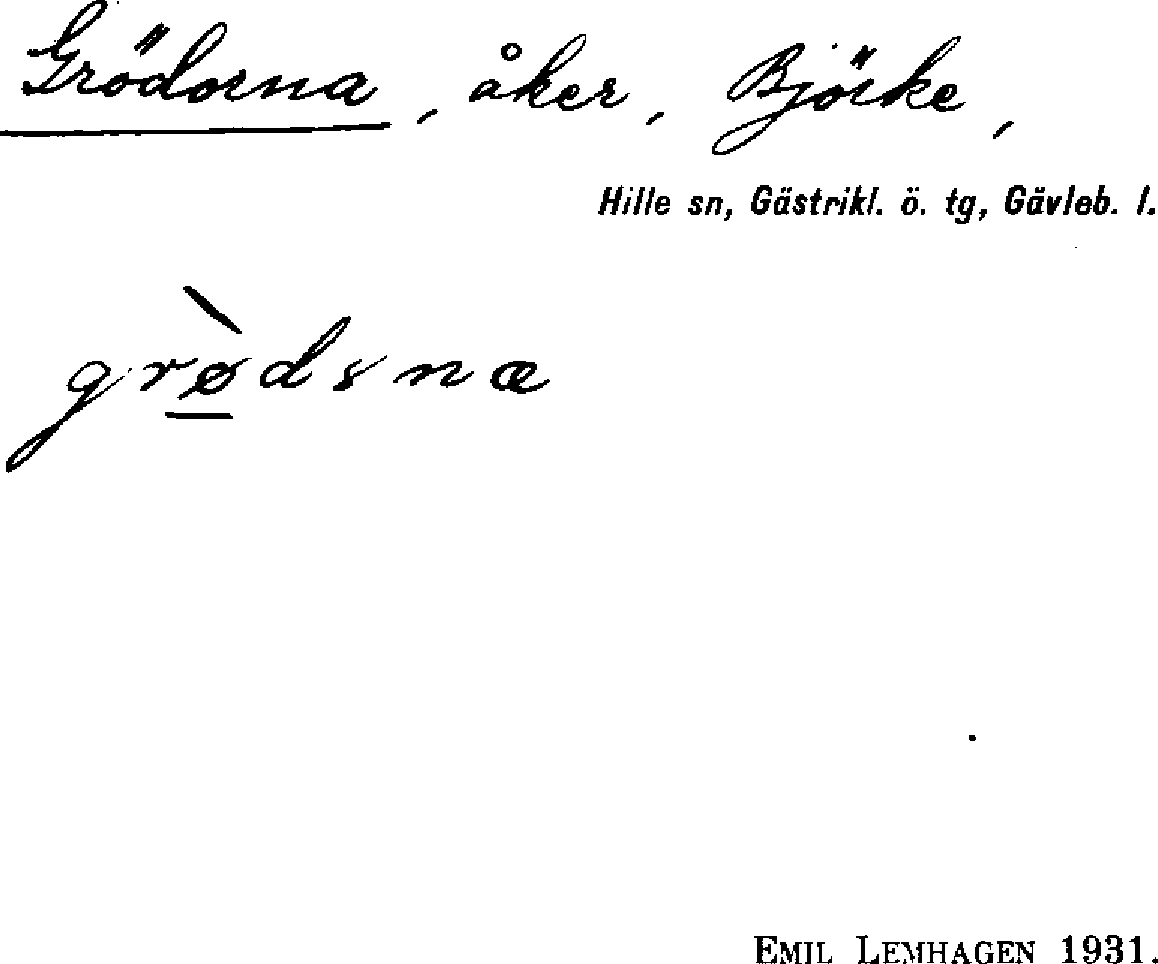 Grödorna, åker, Björke,
Hille sn, Gästrikl. ö. tg, Gävleb. l.
grø̲̀dsnæ
EMIL LEMHAGEN 1931.